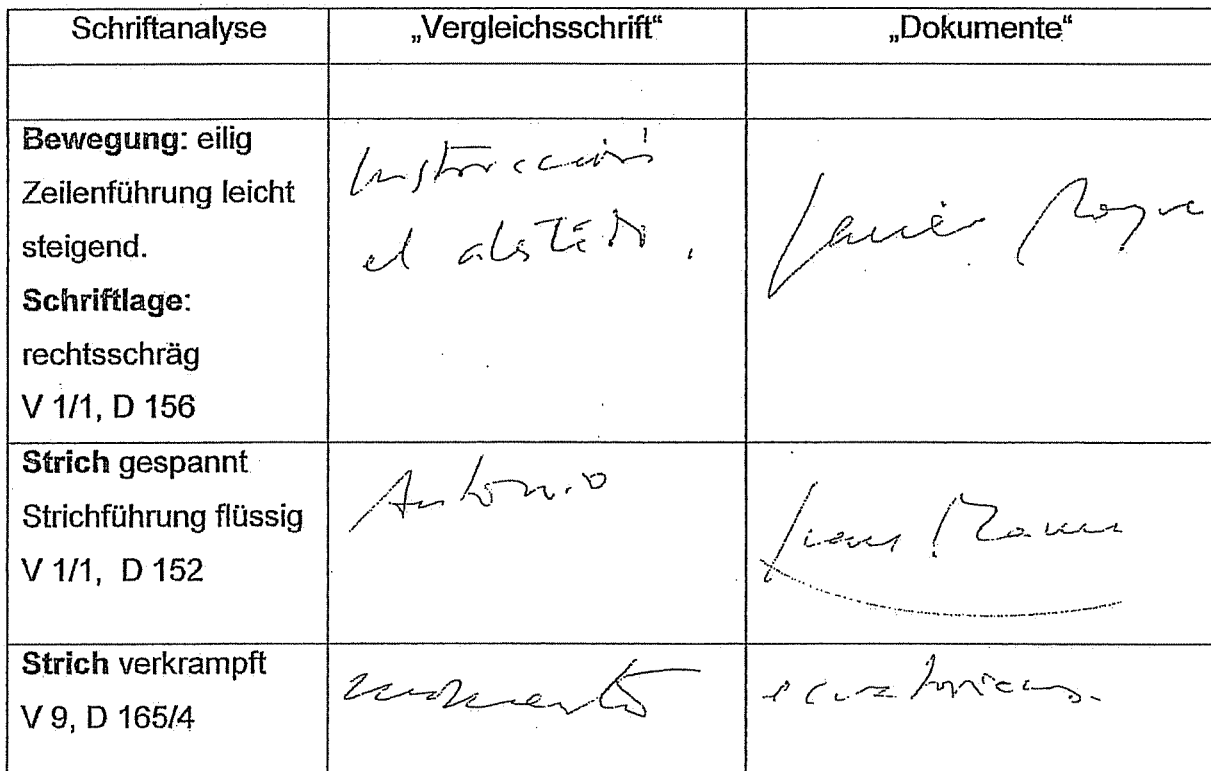 Schriftanalyse
„Vergleichsschrift“
„Dokumente“
Bewegung: eilig
Zeilenführung leicht
steigend.
Schriftlage:
rechtsschräg
V 1/1, D 156
el
Javier
Strich gespannt
Strichführung flüssig
V 1/1, D 152
Antonio
Strich verkrampft
V 9, D 165/4
momento